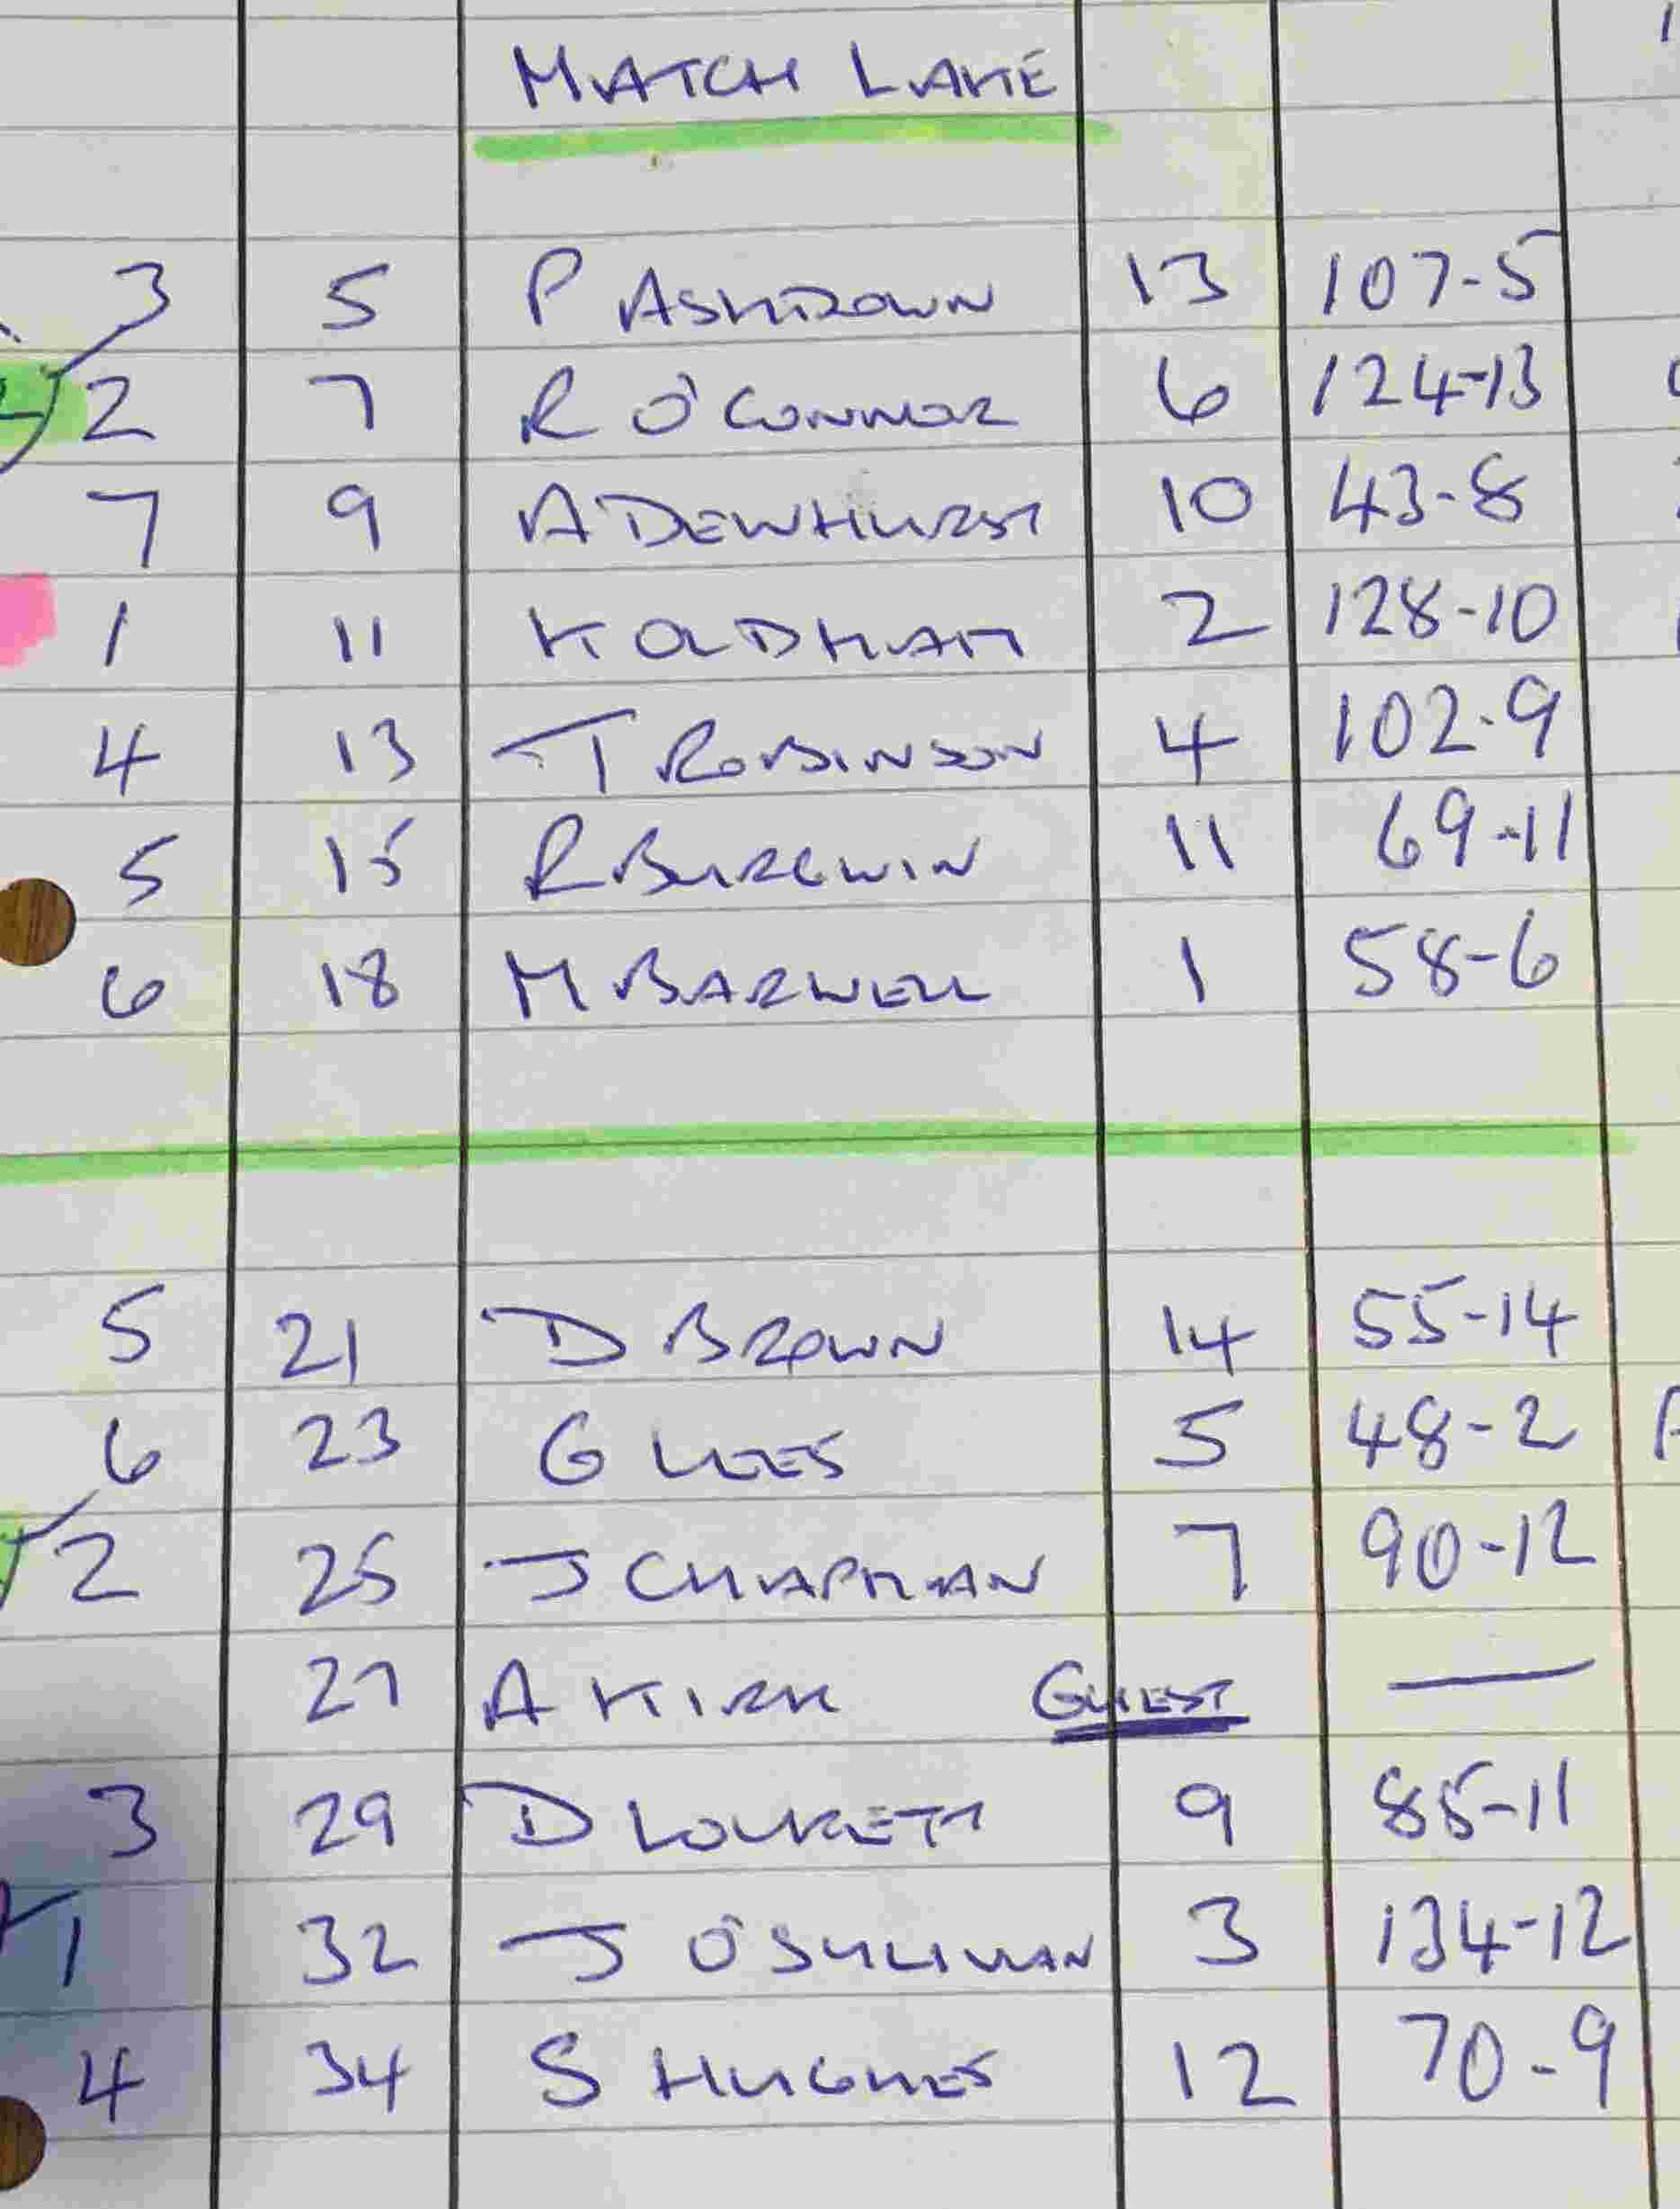 MATCH LAKE
3 5 P ASHDOWN 13 107-5
2 7 R O'CONNOR 6 124-13
7 9 A DEWHURST 10 43-8
1 11 K OLDHAM 2 128-10
4 13 T ROBINSON 4 102-9
5 15 R BURGWIN 11 69-11
6 18 M BARWELL 1 58-6
5 21 D BROWN 14 55-14
6 23 G LEES 5 48-2
2 25 J CHAPMAN 7 90-12
27 A KIRK GUEST —
3 29 D 9 85-11
1 32 J O'SULLIVAN 3 134-12
4 34 S HUGHES 12 70-9